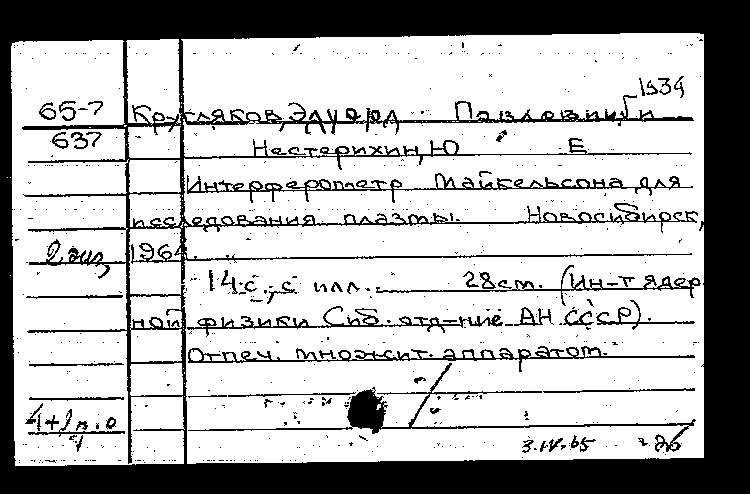 1934
65-7 Кругляков, Эдуард Павлович и
637 Нестерихин, Ю Е
Интерферометр Майкельсона для
исследования плазмы. Новосибирск,
2 экз, 1964.
14 с., с илл. 28см. (Ин-т ядер
ной физики Сиб. отд-ние АН СССР).
Отпеч. множит. аппаратом.
3.IV.65